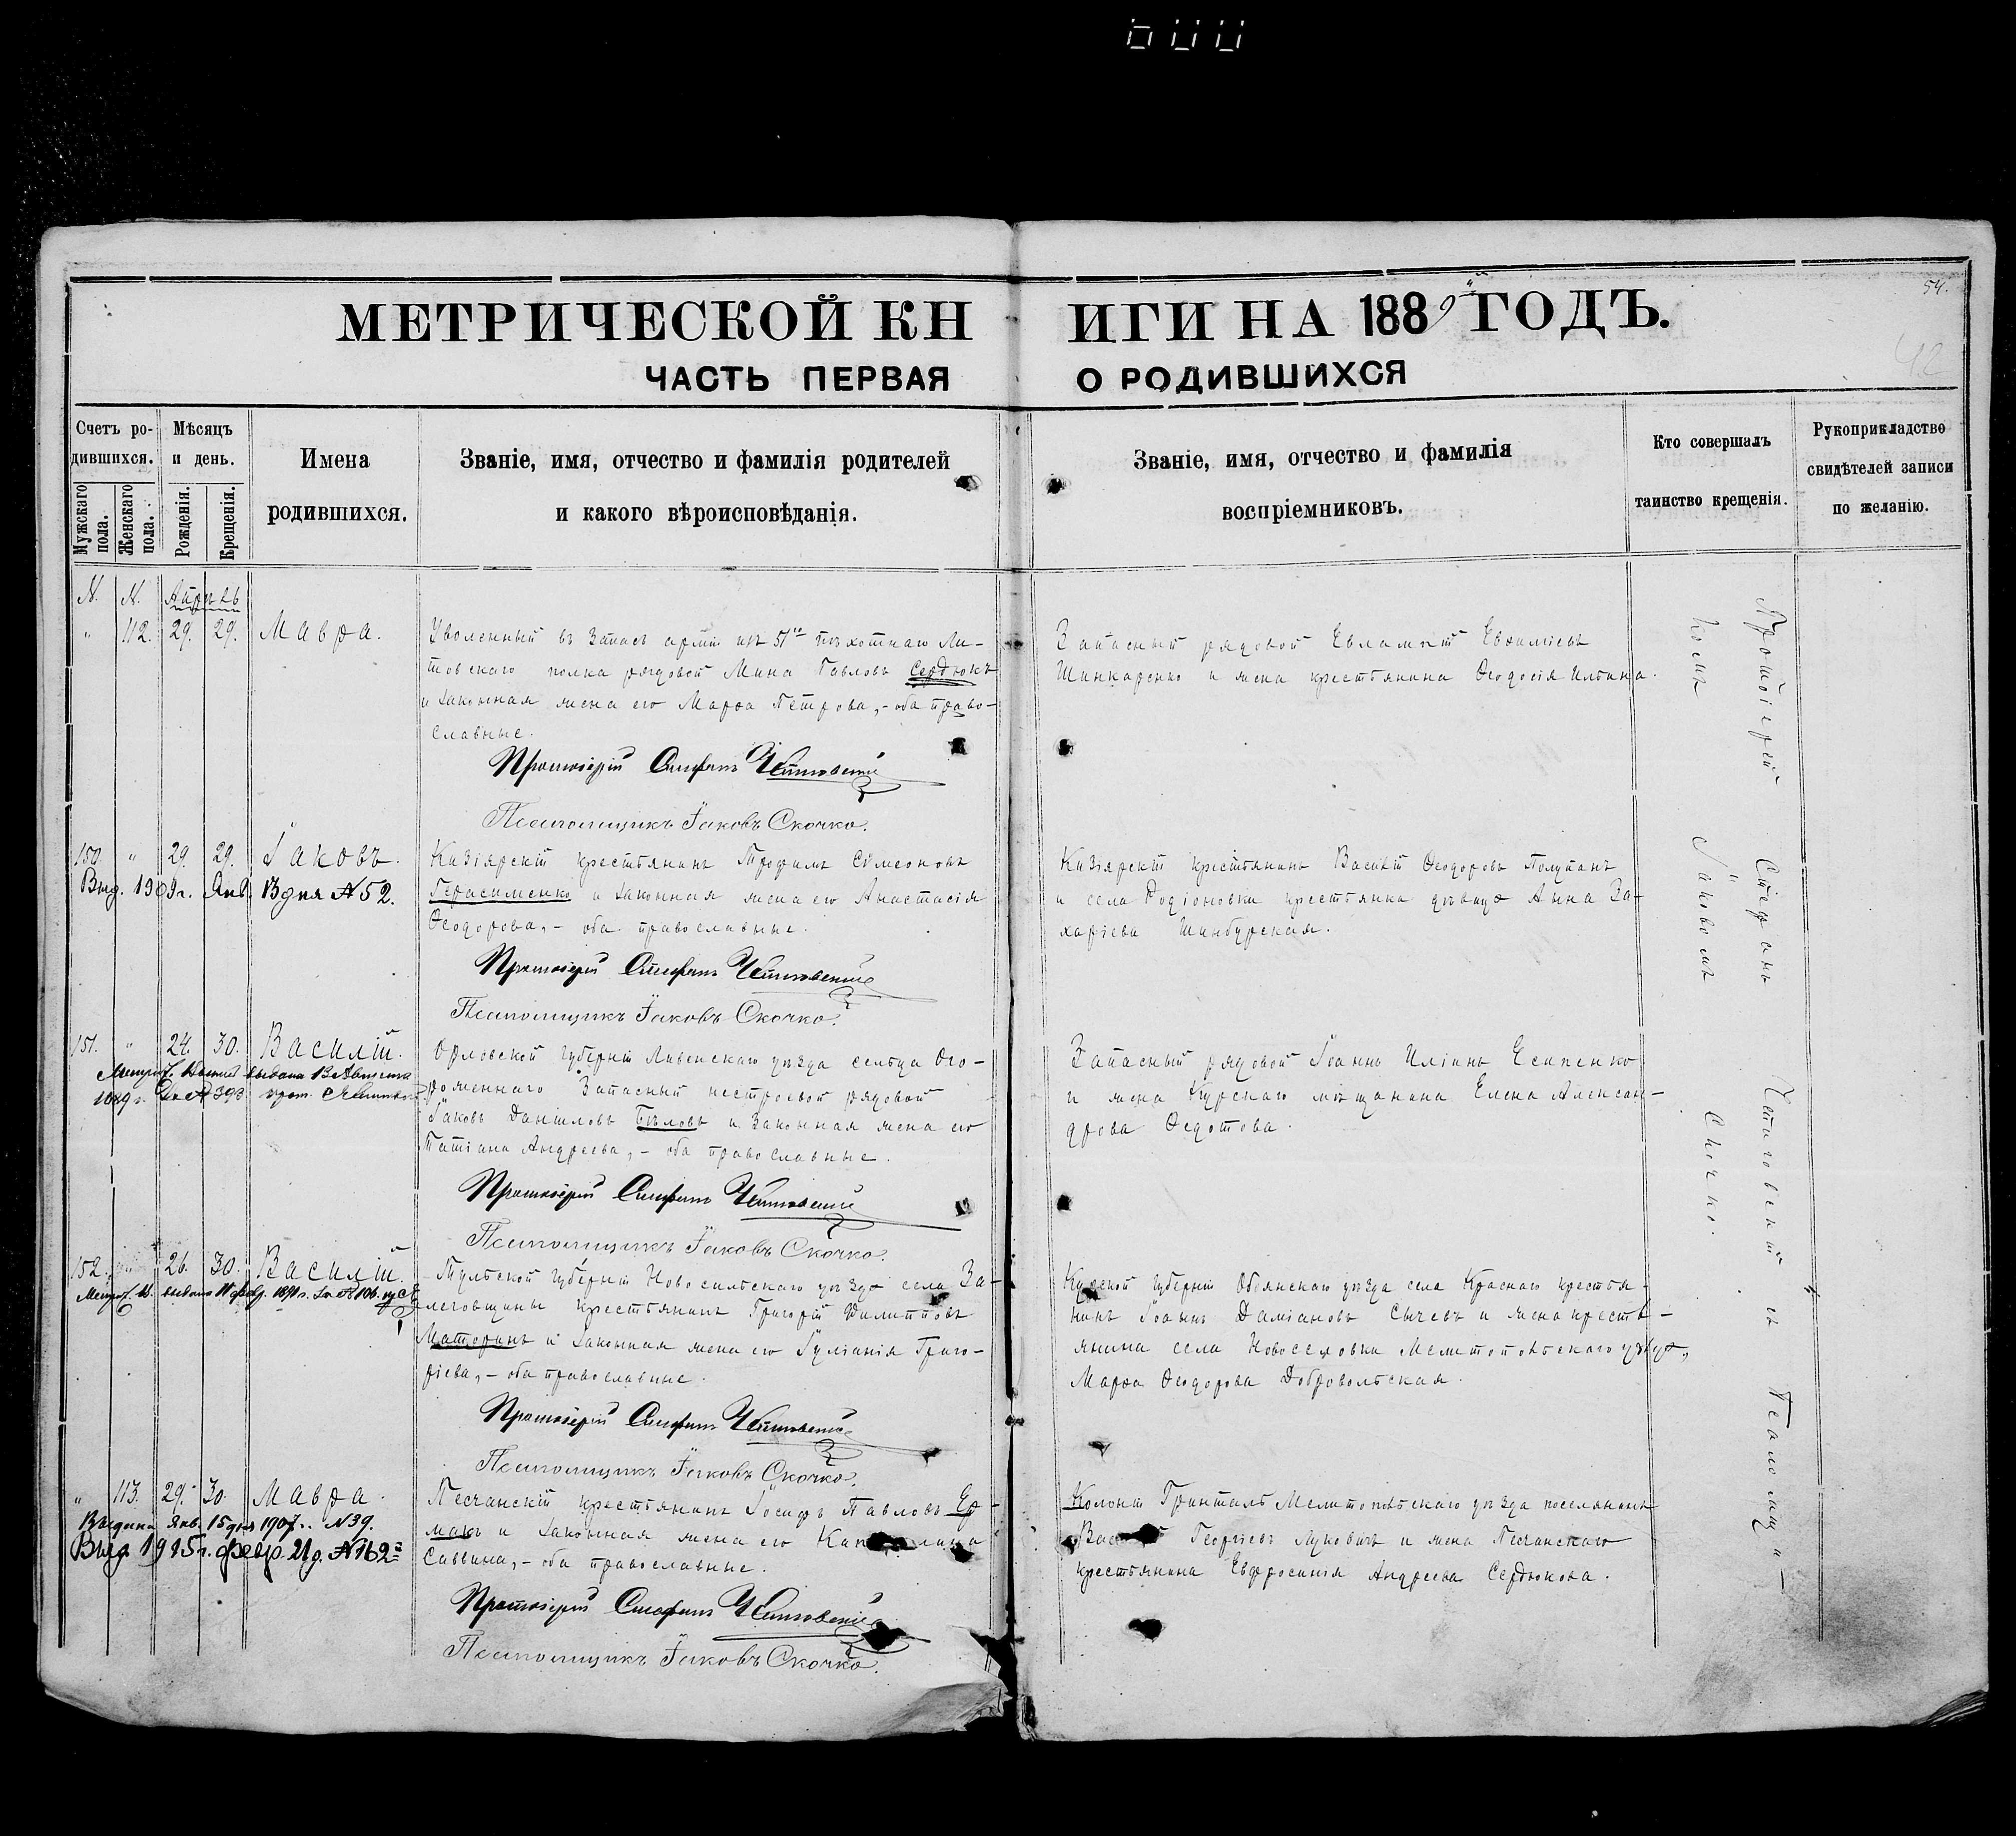 54.
42
МЕТРИЧЕСКОЙ КНИГИ НА 1889й ГОДЪ.
ЧАСТЬ ПЕРВАЯ О РОДИВШИХСЯ
Счетъ ро-
дившихся.
Мужскаго пола.
Женскаго пола.
Мѣсяцъ
и день.
Рожденія.
Крещенія.
Имена
родившихся.
Званіе, имя, отчество и фамилія родителей
и какого вѣроисповѣданія.
Званіе, имя, отчество и фамилія
воспріемниковъ.
Кто совершалъ
таинство крещенія.
Рукоприкладство
свидѣтелей записи
по желанію.
N. N.
" 112. 29. 29. Мавра.
Уволенный въ запасъ арміи изъ 51го пѣхотнаго Ли-
товскаго полка рядовой Мина Павловъ Сердюкъ
и законная жена его Марѳа Петрова, - оба право-
славные.
Протоіерей Стефанъ
Псаломщикъ Іаковъ Скочко.
Запасный рядовой Евлампій Евѳиміевъ
Шинкаренко и жена крестьянина Ѳеодосія Ильина.
150. " 29. 29. Іаковъ.
Выд. 1909 г. Янв. 13 дня № 52.
Кизіярскій крестьянинъ Трофимъ Сѵмеоновъ
Герасименко и законная жена его Анастасія
Ѳеодорова, - оба православные.
Протоіерей Стефанъ
Псаломщикъ Іаковъ Скочко.
Кизіярскій крестьянинъ Василій Ѳеодоровъ Полупанъ
и села Родіоновки крестьянка дѣвица Анна За-
харіева Шинбурская.
151. " 24. 30. Василій.
выдана 13 Августа
1889 г. за № 393
Орловской губерніи Ливенскаго уѣзда сельца Ого-
роменнаго запасный нестроевой рядовой
Іаковъ Даніиловъ Бѣловъ и законная жена его
Татіана Андреева, - оба православные.
Протоіерей Стефанъ
Псаломщикъ Іаковъ Скочко.
Запасный рядовой Іоаннъ Иліинъ Есипенко
и жена Курскаго мѣщанина Елена Алексан-
дрова Ѳедотова.
152. 26. 30. Василій.
Тульской губерніи Новосильскаго уѣзда села За-
леговщины крестьянинъ Григорій Филипповъ
Маторинъ и законная жена его Іуліанія Григо-
ріева, - оба православные.
Протоіерей Стефанъ
Псаломщикъ Іаковъ Скочко.
Курской губерніи Обоянскаго уѣзда села Краснаго крестья-
нинъ Іоаннъ Даміановъ Сычевъ и жена кресть-
янина села Новоселовки Мелитопольскаго уѣзда,
Марѳа Ѳеодорова Добровольская.
" 113. 29. 30. Мавра.
Выдана Янв. 15 дня 1907 г. № 39.
Выд. 1915 г. февр. 21 д. № 162
Песчанскій крестьянинъ Іосифъ Павловъ Ер-
макъ и законная жена его
Саввина, - оба православные.
Протоіерей Стефанъ
Псаломщикъ Іаковъ Скочко.
Колоніи Гринталь Мелитопольскаго уѣзда поселянинъ
Георгіевъ и жена Песчанскаго
крестьянина Евфросинія Андреева Сердюкова.
Протоіерей Стефанъ съ Псаломщи-
комъ Іаковомъ Скочко.